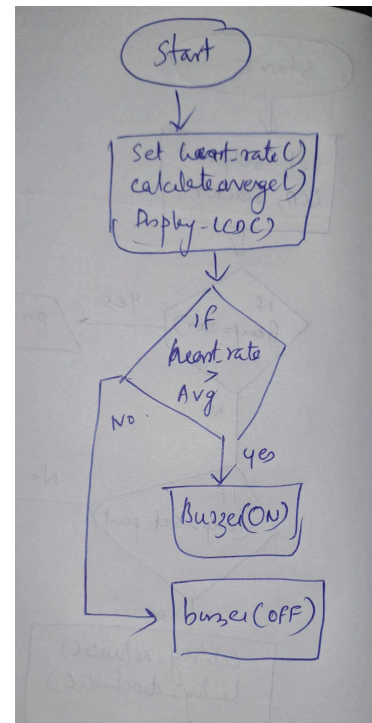 Start
Set heart_rate()
calculateaverge()
Display-LCD()
if
heart_rate
>
Avg
No.
yes
Buzzer(ON)
buzzer(OFF)